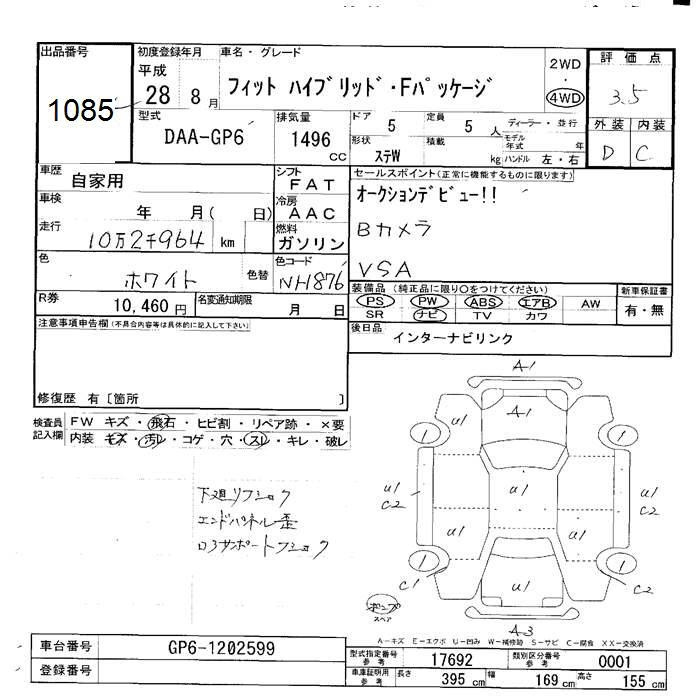 出品番号 初度登録年月 車名・グレード 評価点
平成 2WD
1085 28 8月 フィット ハイブリッド・Fパッケージ ・ 3.5
4WD
型式 排気量 ドア 定員 ディーラー・並行 外装 内装
DAA-GP6 1496 5 5 人 モデル年式 年 D C
CC 形状 ステW 積載 kg ハンドル 左・右
車歴 自家用 シフト FAT セールスポイント(正常に機能するものに限ります)
車検 年 月( 日) 冷房 AAC オークションデビュー!!
走行 10万2千964 km 燃料 ガソリン Bカメラ
色 ホワイト 色替 色コード NH876 VSA
R券 10,460円 名変通知期限 月 日 装備品(純正品に限り○をつけてください) 新車保証書
PS PW ABS エアB AW 有・無
SR ナビ TV カワ
注意事項申告欄(不具合内容等は具体的に記入して下さい) 後日品 インターナビリンク
修復歴 有[箇所 ]
検査員記入欄 FW キズ・飛石・ヒビ割・リペア跡・×要
内装 キズ・汚レ・コゲ・穴・スレ・キレ・破レ
A-1
A-1
U1
1 1
U1 U1 U1
C2 C2
U1 U1
下廻リフショク
エンドパネル歪
ロアサポートフショク
1 1
C1 U1 C2
ポンプ
スペア
A-3
A-キズ E-エクボ U-凹み W-補修跡 S-サビ C-腐食 XX-交換済
車台番号 GP6-1202599 型式指定番号 参考 17692 類別区分番号 参考 0001
登録番号 車庫証明用 参考 長さ 395 cm 幅 169 cm 高さ 155 cm